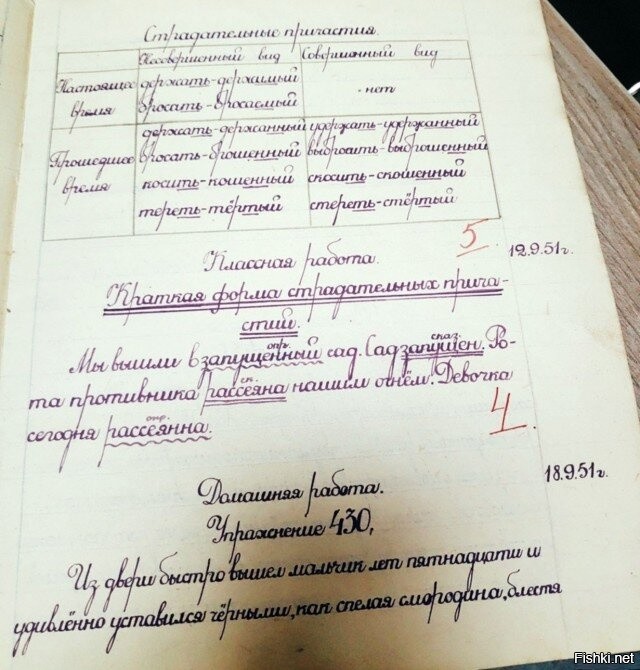 Страдательные причастия.
Несовершенный вид Совершенный вид
Настоящее время держать-держимый - нет
бросать-бросаемый
Прошедшее время держать-держанный удержать-удержанный
бросать-брошенный выбросить-выброшенный
косить-кошенный скосить-скошенный
тереть-тёртый стереть-стёртый
5
Классная работа. 12.9.51г.
Краткая форма страдательных прича-
стий.
опр. сказ.
Мы вышли в запущенный сад. Сад запущен. Ро-
ск.
та противника рассеяна нашим огнём. Девочка
опр.
сегодня рассеянна.
4
18.9.51г.
Домашняя работа.
Упражнение 430,
Из двери быстро вышел мальчик лет пятнадцати и
удивлённо уставился чёрными, как спелая смородина, блестя
Fishki.net